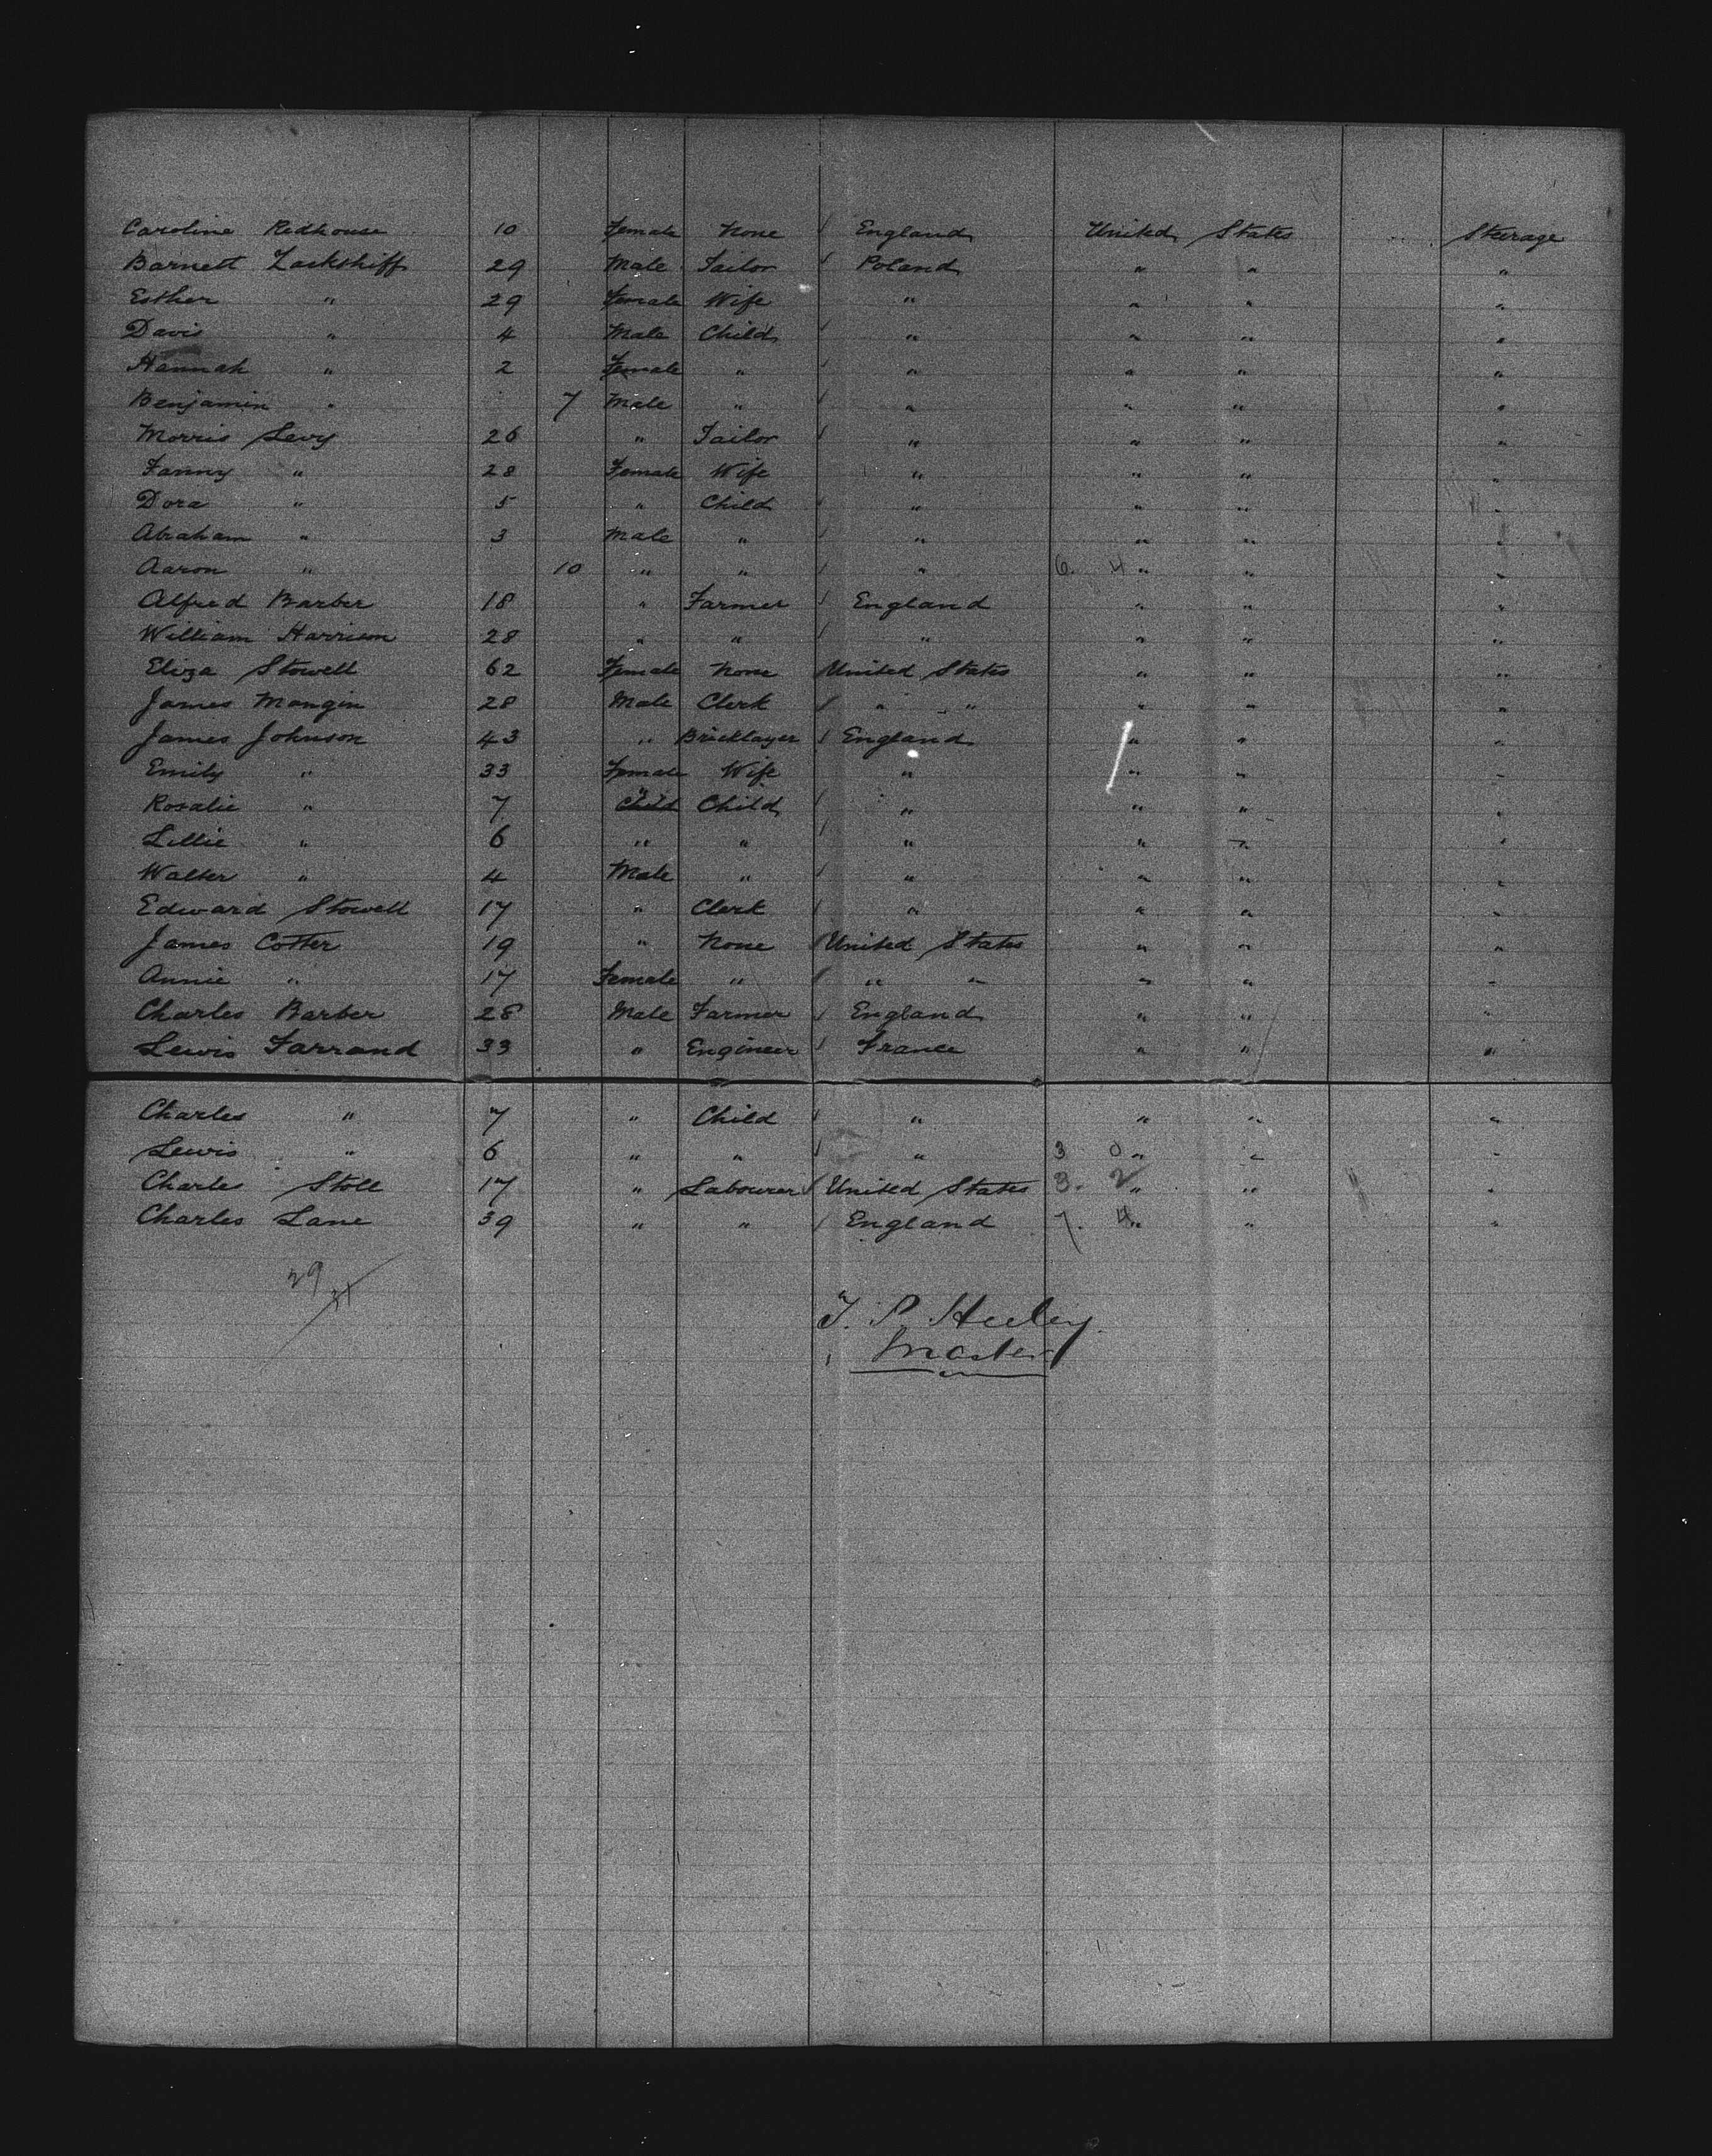 Caroline Redhouse 10 Female None England United States Steerage
Barnett Zackshiff 29 Male Tailor Poland " " "
Esther " 29 Female Wife " " " "
Davis " 4 Male Child " " " "
Hannah " 2 Female " " " " "
Benjamin " 7 Male " " " " "
Morris Levy 26 " Tailor " " " "
Fanny " 28 Female Wife " " " "
Dora " 5 " Child " " " "
Abraham " 3 Male " " " " "
Aaron " 10 " " " 6. 4 " " "
Alfred Barber 18 " Farmer England " " "
William Harrison 28 " " " " " "
Eliza Stowell 62 Female None United States " " "
James Mangin 28 Male Clerk " " " " "
James Johnson 43 " Bricklayer England " " "
Emily " 33 Female Wife " " " "
Rosalie " 7 " Child " " " "
Lillie " 6 " " " " " "
Walter " 4 Male " " " " "
Edward Stowell 17 " Clerk " " " "
James Cotter 19 " None United States " " "
Annie " 17 Female " " " " " "
Charles Barber 28 Male Farmer England " " "
Lewis Farrand 33 " Engineer France " " "
Charles " 7 " Child " " " "
Lewis " 6 " " " 3 0 " " "
Charles Stoll 17 " Labourer United States 3. 2 " " "
Charles Lane 39 " " England 7. 4 " " "
29
T. P. Heeley
Master